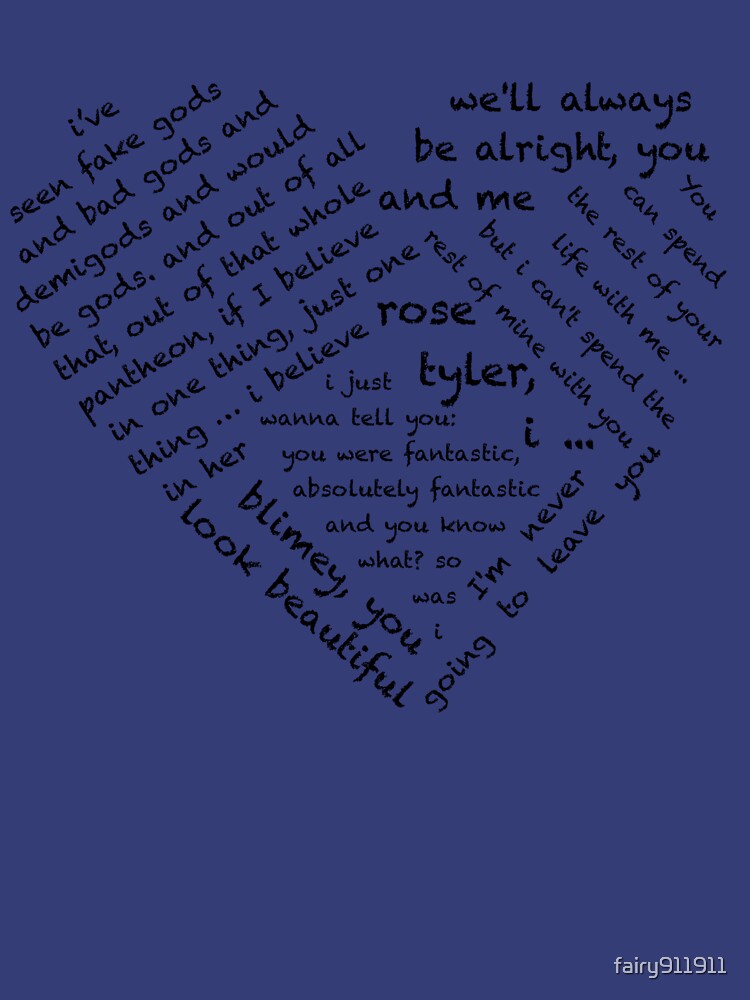 i've
seen fake gods
and bad gods and
demigods and would
be gods. and out of all
that, out of that whole
pantheon, if I believe
in one thing, just one
thing ... i believe
in her
we'll always
be alright, you
and me
You
can spend
the rest of your
life with me ...
but i can't spend the
rest of mine with you
rose
tyler,
i ...
i just
wanna tell you:
you were fantastic,
absolutely fantastic
and you know
what? so
was
i
blimey, you
look beautiful
I'm never
going to leave you
fairy911911